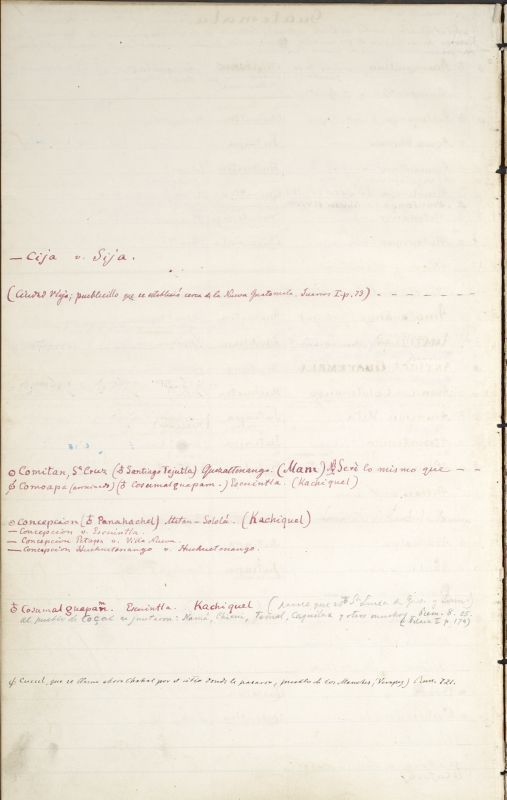 — Cija v. Sija.
(Ciudad Vieja; pueblecillo que se estableció cerca de la Nueva Guatemala. Juarros I. p. 73) - - - - - -
Comitan, Sta Cruz (Santiago Tejutla) Quezaltenango. (Mam) Será lo mismo que - -
Comoapa (arruinado) (Cosumalguapam.) Escuintla. (Kachiquel)
Concepcion (Panahachel) Atitan - Sololá. (Kachiquel)
— Concepcion v. Escuintla.
— Concepcion Petapa v. Villa Nueva.
— Concepcion Huehuetenango v. Huehuetenango.
Cosumalguapam. Escuintla. Kachiquel (parece que es Sta Lucia de
al pueblo de Cozal se juntaron: Namá, Chicui, Temal, Caquilax y otros muchos. Rem. 8. 25.
p. 179)
Cucul, que se llama ahora Chahal por el sitio donde le pasaron, pueblo de los Manches, (Verapaz)